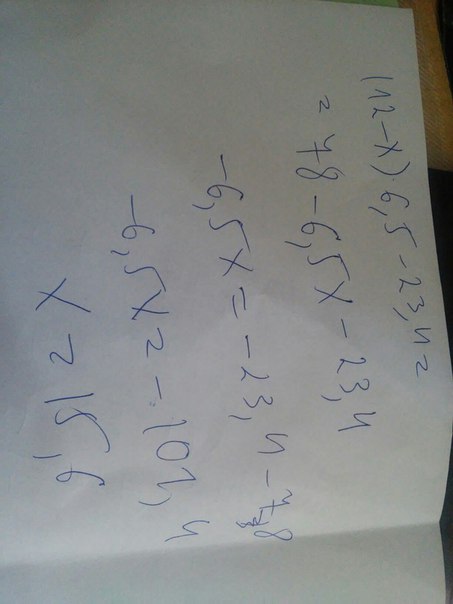 (12-x)·6,5-23,4=
=78-6,5x-23,4
-6,5x=-23,4-78
-6,5x=-101,4
x=15,6